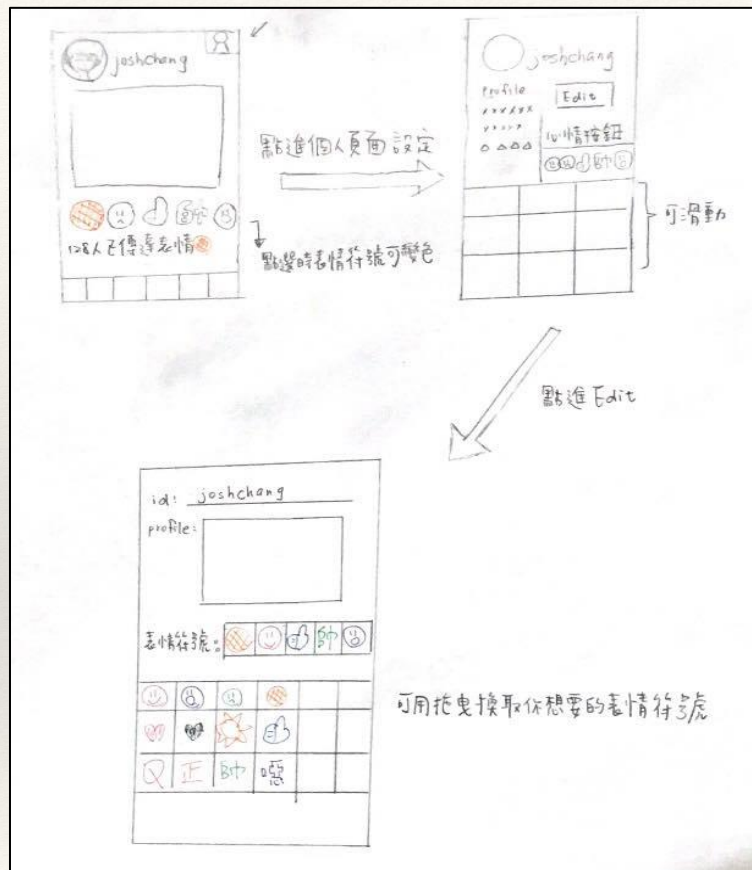 joshchang
128人已傳達表情
點進個人頁面設定
點選時表情符號可變色
joshchang
Profile
Edit
心情按鈕
帥
可滑動
點進 Edit
id: joshchang
profile:
表情符號:
帥
Q 正 帥 噁
可用拖曳換取你想要的表情符號